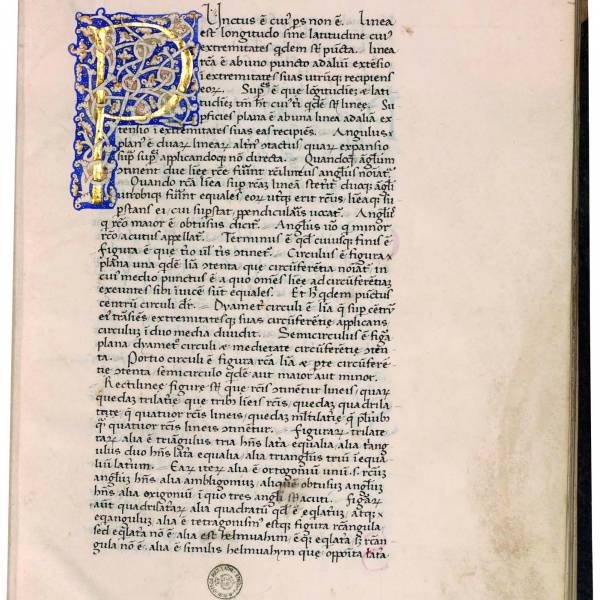 Punctus ē cui' ps non ē. Linea
est longitudo sine latitudine cui'
extremitates qdem st̄ pūcta. linea
rc̄a ē ab uno puncto ad aliū extēsio
ī extremitates suas utrūq; recipiens
eor̄. Sup̄s ē que lōgitudiē æ lati
tudiēz tm̄ ht cui' tī qdē st̄ lineę. Su
pficies plana ē ab una linea ad aliā ex
tensio ī extremitates suas eas recipiēs. Angulus
plan' ē duar̄ linear̄ altn' ɔtactus quar̄ expansio
sup̄ sup̄s applicandoq; nō directa. Quandoq; āglum
ɔtinent due lięe rc̄e fiūnt rc̄ilineus anglus noīat'
Quando rc̄a līea sup rc̄am lineā stetit duoq; āgli
utrobiq; fiūnt equales eor̄ utq; erit rc̄us līeaq; līę
sup̄stans ei cui supstat ppendicularis uocat'. Angli'
q rc̄o maior ē obtusus dicit'. Anglus uō q minor
rc̄o acutus appellat'. Terminus ē qd cuiusq; finis ē
figura ē que tīo ul' tīs ɔtinet'. Circulus ē figura
plana una qdē līa ɔtenta que circūferētia noīat' in
cuius medio punctus ē a quo omēs līeę ad circūferētiā
exeuntes sibi īuicē sūt equales. Et hic qdem pūctus
centrū circuli dr̄. Dyameter circuli ē līa q sup cētrū
ei' trāsiēs extremitatesq; suas circūferētię applicans
circulū ī duo media diuidit. Semicirculus ē figa
plana dyamet° circuli æ medietate circūferētię ɔtēn
ta. Portio circuli ē figura rc̄a līa æ pte circūferē
tię ɔtenta semicirculo qdē aut maior aut minor.
Rectilineę figurę st̄ que rc̄is ɔtinetur lineis, quar̄
quędaz trilatię que trib' līeis rc̄is, quędaz quadrila
terę q quatuor rc̄is lineis, quędaz mltilatię q plurib'
qz quatuor rc̄is lineis ɔtinet'. Figurar̄ trilate
rar̄ alia ē triāgulus tria hn̄s latā equalia, alia triang
ulus duo hn̄s latā equalia alia triangl's triū ī equa
liū latum. Ear̄ iter̄ alia ē ortogoniū unū s. rc̄um
anglū hn̄s alia ambligoniuz aliquē obtusuz anglū
hn̄s alia oxigoniū ī quo tres angli st̄ acuti. Figar̄
aut quadrilatar̄ alia quadratū qd ē eqlatū, atq;
eqangulū alia ē tetragonus estq; figura rc̄angula
sed eqlatā nō ē alia est helmuahin, ē q; eqlatā sz rc̄an
gula nō ē, alia ē similis helmuahym que opposita latā